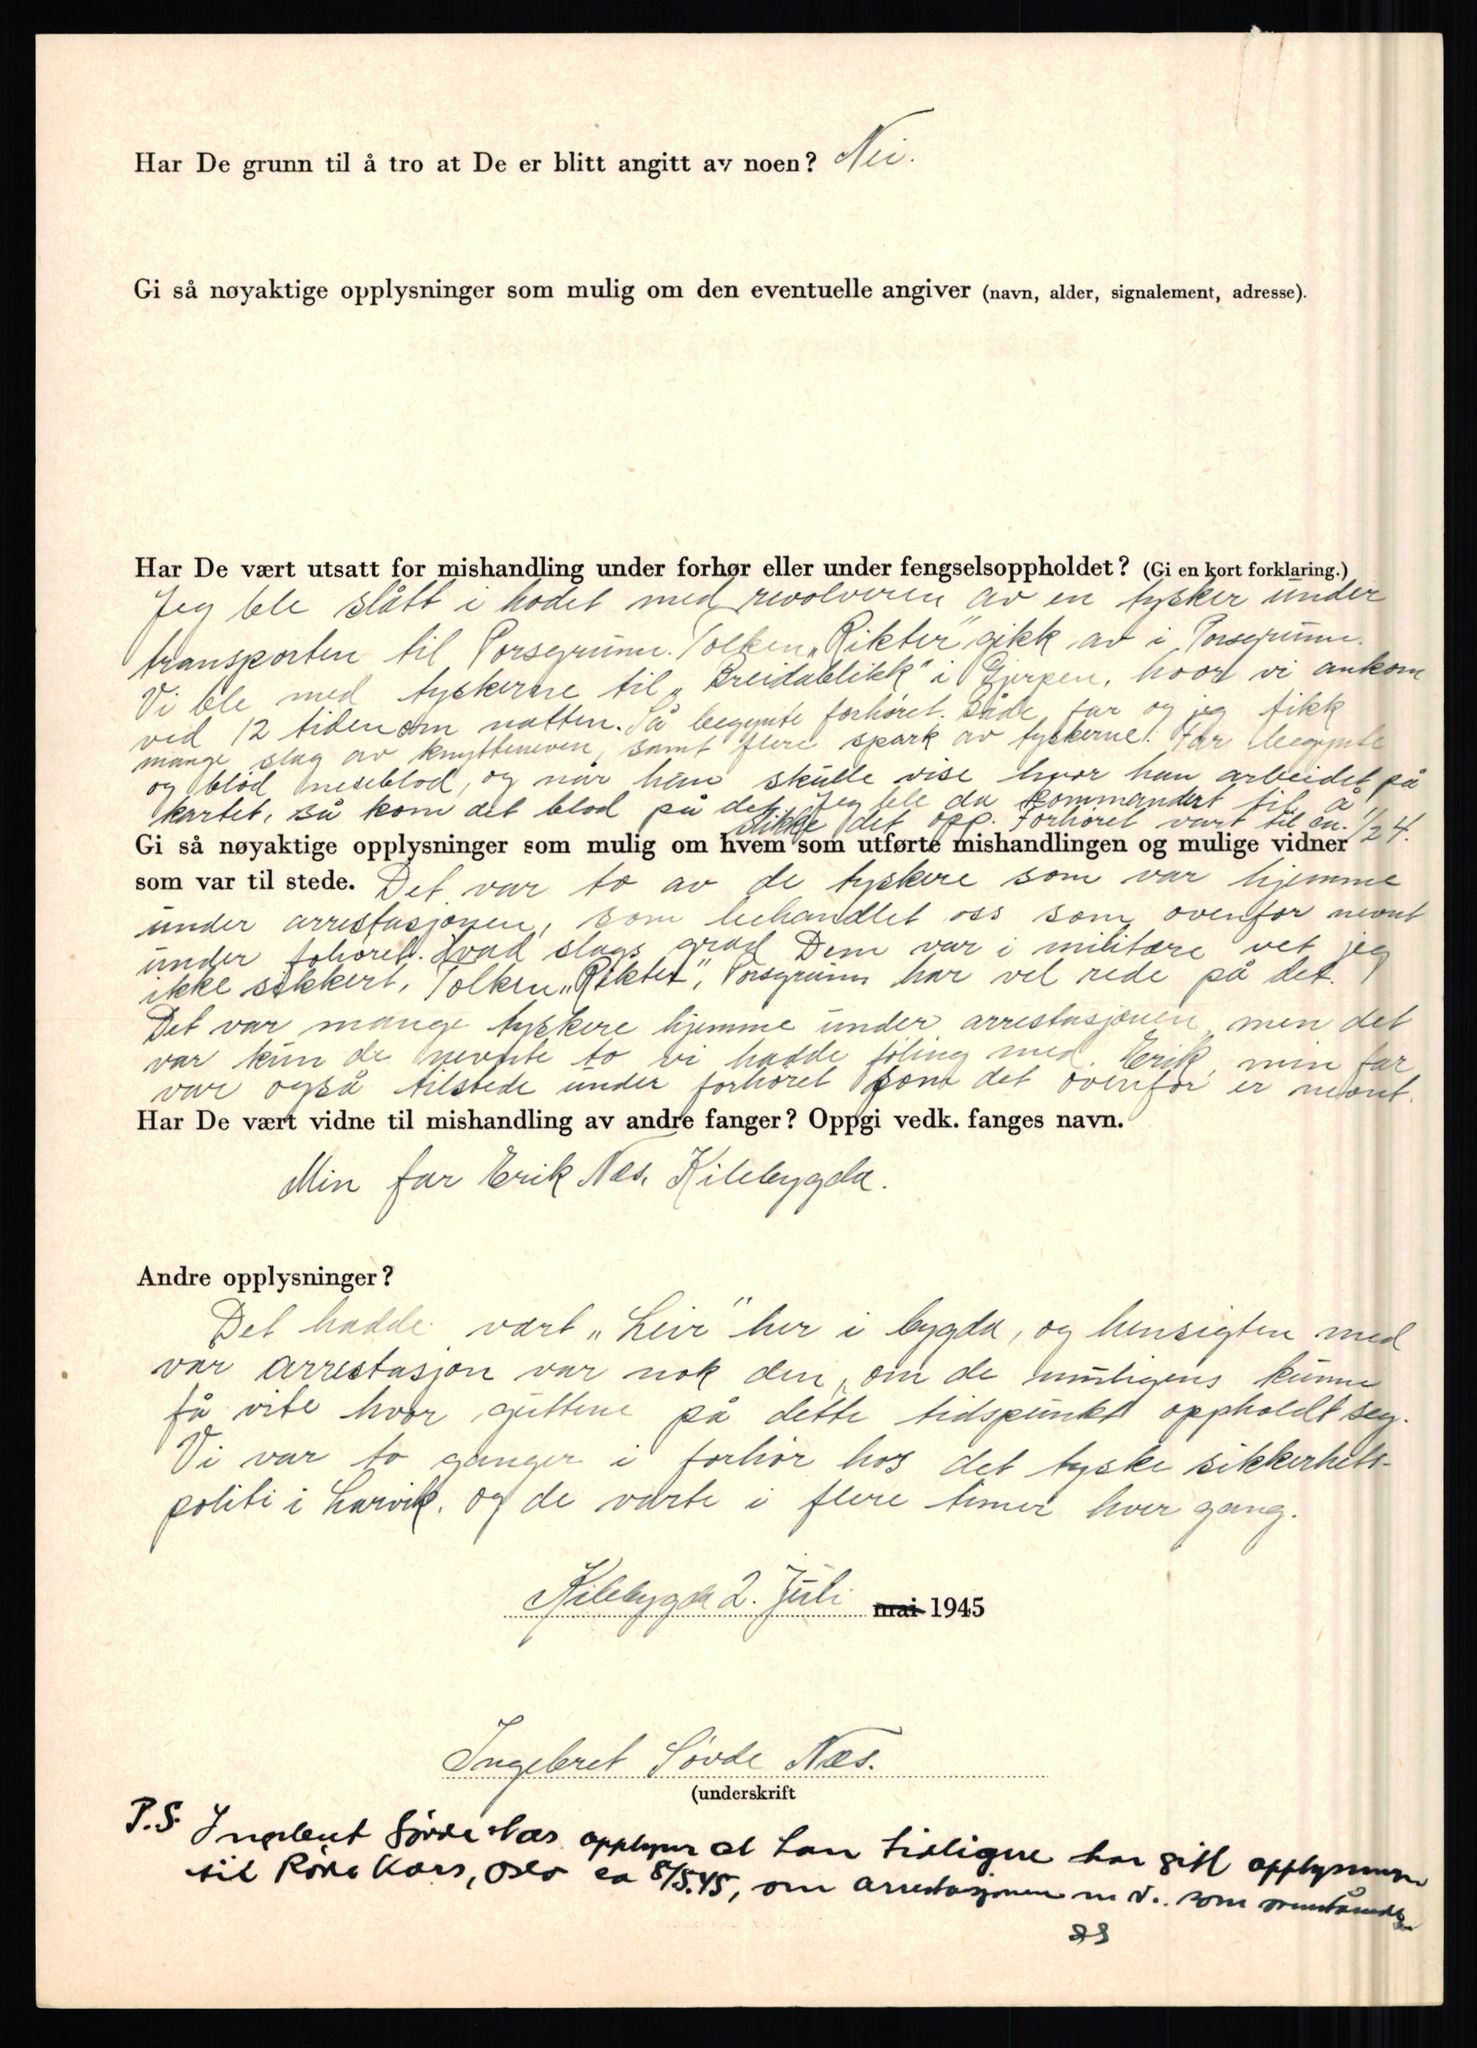 Har De grunn til å tro at De er blitt angitt av noen? Nei.
Gi så nøyaktige opplysninger som mulig om den eventuelle angiver (navn, alder, signalement, adresse).
Har De vært utsatt for mishandling under forhør eller under fengselsoppholdet? (Gi en kort forklaring.)
Jeg ble slått i hodet med revolveren av en tysker under
transporten til Porsgrunn. Tolken „Rikter" gikk av i Porsgrunn.
Vi ble med tyskerne til „Breidablikk" i Gjerpen, hvor vi ankom
ved 12 tiden om natten. Så begynte forhøret. Både far og jeg fikk
mange slag av knyttneven, samt flere spark av tyskerne. Far begynte
og blød neseblod, og når han skulle vise hvor han arbeidet på
kartet, så kom det blod på det. Jeg ble da kommandert til å
slikke det opp. Forhøret vart til ca. 1/2 4.
Gi så nøyaktige opplysninger som mulig om hvem som utførte mishandlingen og mulige vidner
som var til stede. Det var to av de tyskere som var hjemme
under arrestasjonen, som behandlet oss som ovenfor nevnt
under fohøret. Hvad slags grad Dem var i militære vet jeg
ikke sikkert, Tolken „Rikter", Porsgrunn har vel rede på det.
Det var mange tyskere hjemme under arrestasjonen, men det
var kun de nevnte to vi hadde føling med. Erik, min far
var også tilstede under forhøret som det ovenfor er nevnt.
Har De vært vidne til mishandling av andre fanger? Oppgi vedk. fanges navn.
Min far Erik Næs, Kilebygda.
Andre opplysninger?
Det hadde vært „Leir" her i bygda, og hensigten med
vår arrestasjon var nok den, om de muligens kunne
få vite hvor guttene på dette tidspunkt oppholdt seg.
Vi var to ganger i forhør hos det tyske sikkerhets-
politi i Larvik, og de varte i flere timer hver gang.
Kilebygda 2. Juli mai 1945
Ingebret Søvde Næs.
(underskrift
P.S. Ingebret Søvde Næs opplyser at han tidligere har gitt opplysninger
til Røde Kors, Oslo ca 8/5.45, om arrestasjonen m v. som